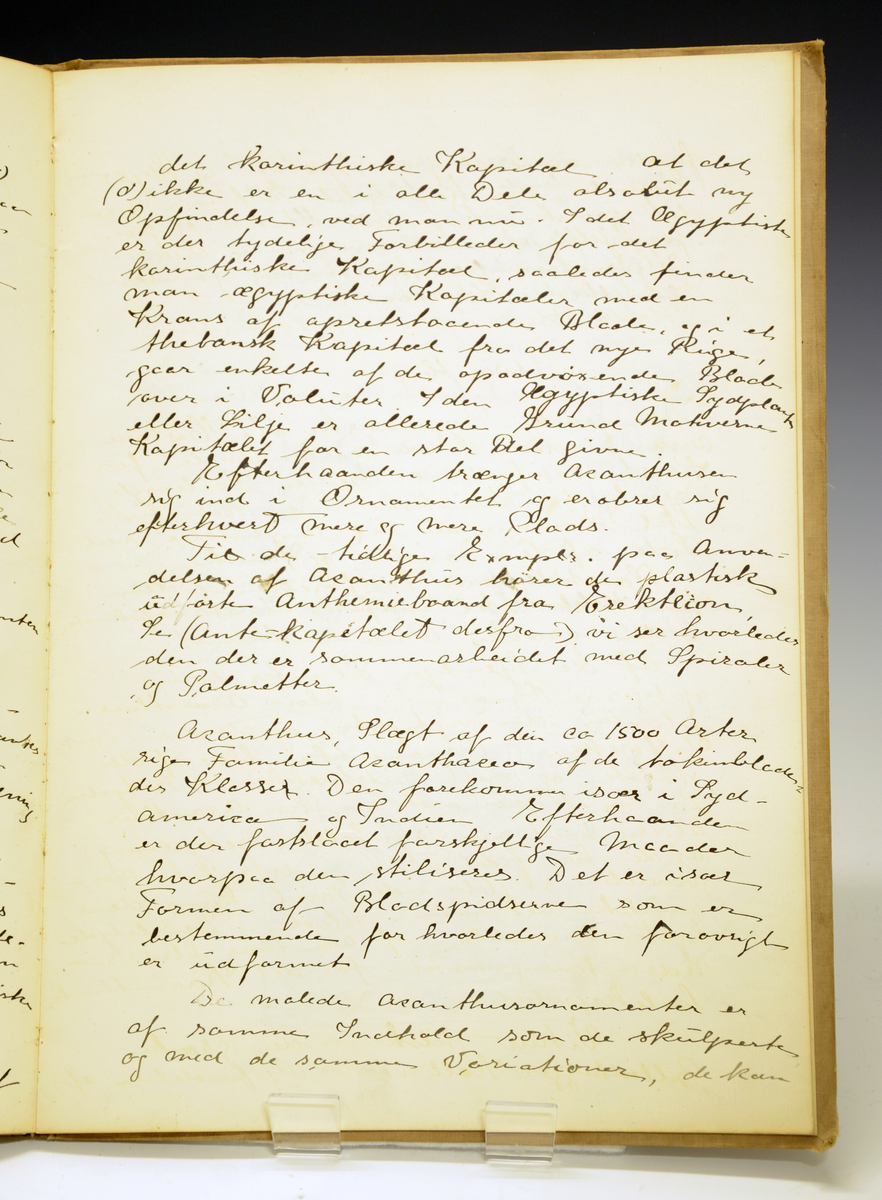 det korinthiske Kapitæl at det
(d) ikke er en i alle Dele absolut ny
Opfindelse, ved man nu. I det Ægyptiske
er der tydelige Forbilleder for det
korinthiske Kapitæl, saaledes finder
man ægyptiske Kapitæler med en
Krans af opretstaaende Blade, og i et
thebansk Kapitæl fra det nye Rige,
gaar enkelte af de opadvoxende Blade
over i Voluter I den Ægyptiske Sydplant
eller Lilje er allerede Grund Motiverne
Kapitælet for en stor Del givne.
Efterhaanden trænger Acanthusen
sig ind i Ornamentet og erobrer sig
efterhvert mere og mere Plads.
Til de tidlige Exmplr. paa Anven-
delsen af Acanthus hører de plastisk
udførte Anthemiebaand fra Erektlion,
Se (Ante-kapitælet desfra) vi ser hvorledes
den der er sammenarbeidet med Spiraler
og Palmetter.
Acanthus, Slægt af den ca 1500 Arter
rige Familie Acanthacea af de tokimblade-
des Klasser. Den forekommer især i Syd-
america og Indien Efterhaanden
er der fastslaaet forskjellige Maader
hvorpaa den stiliseres. Det er især
Formen af Bladspidserne som er
bestemmende for hvorledes den forøvrigt
er udformet
De malede Acanthusornamenter er
af samme Indhold som de skulperte
og med de samme Variationer, de kan